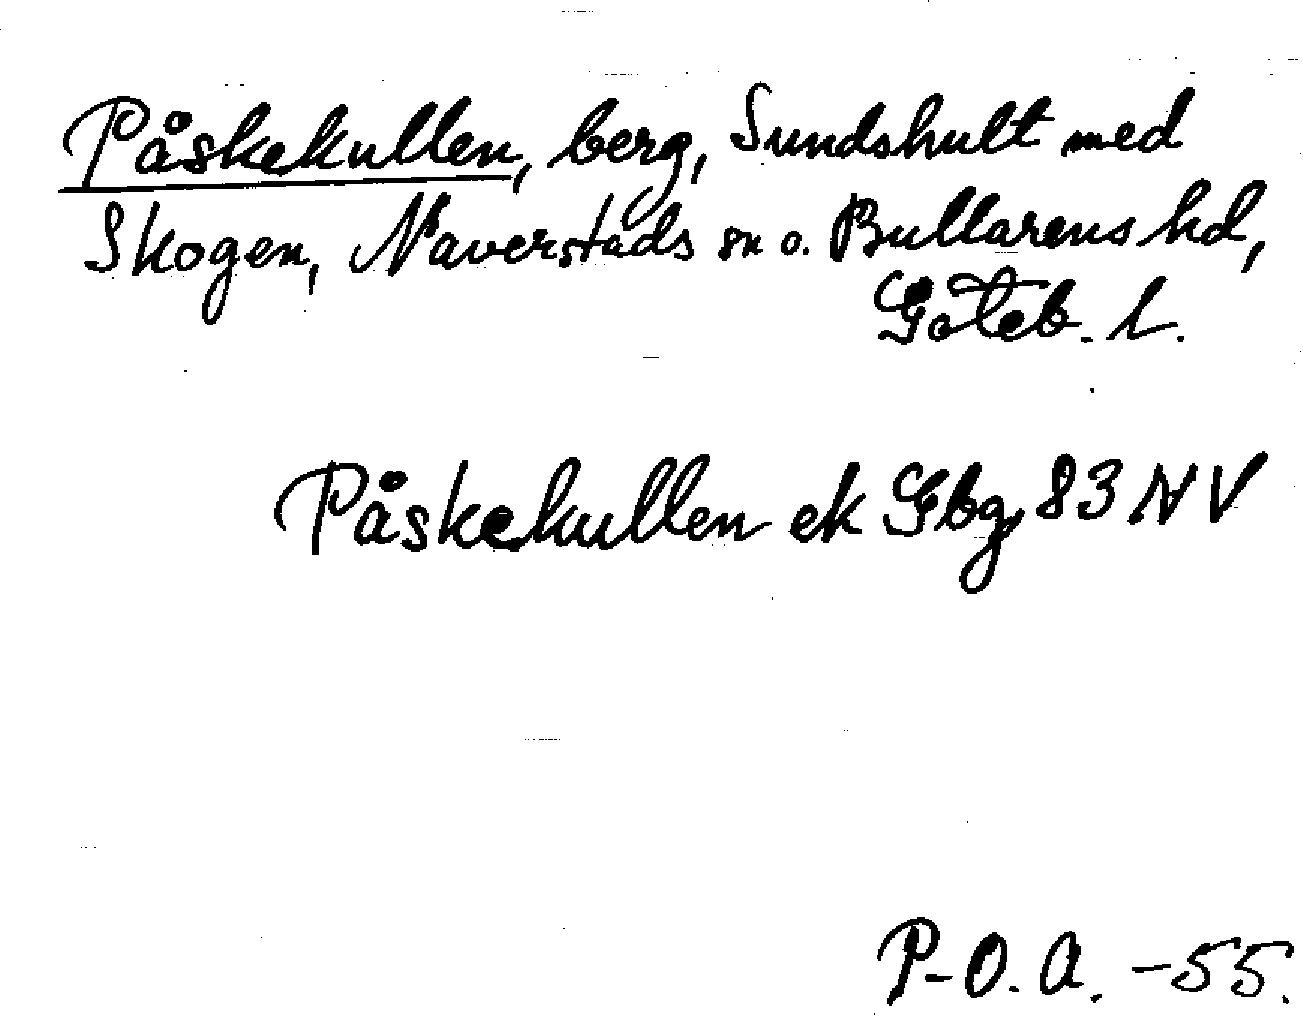 Påskekullen, berg, Sundshult med
Skogen, Naverstads sn o. Bullarens hd,
Göteb. l.
Påskekullen ek Gbg 83 NV
P-O. A. -55.